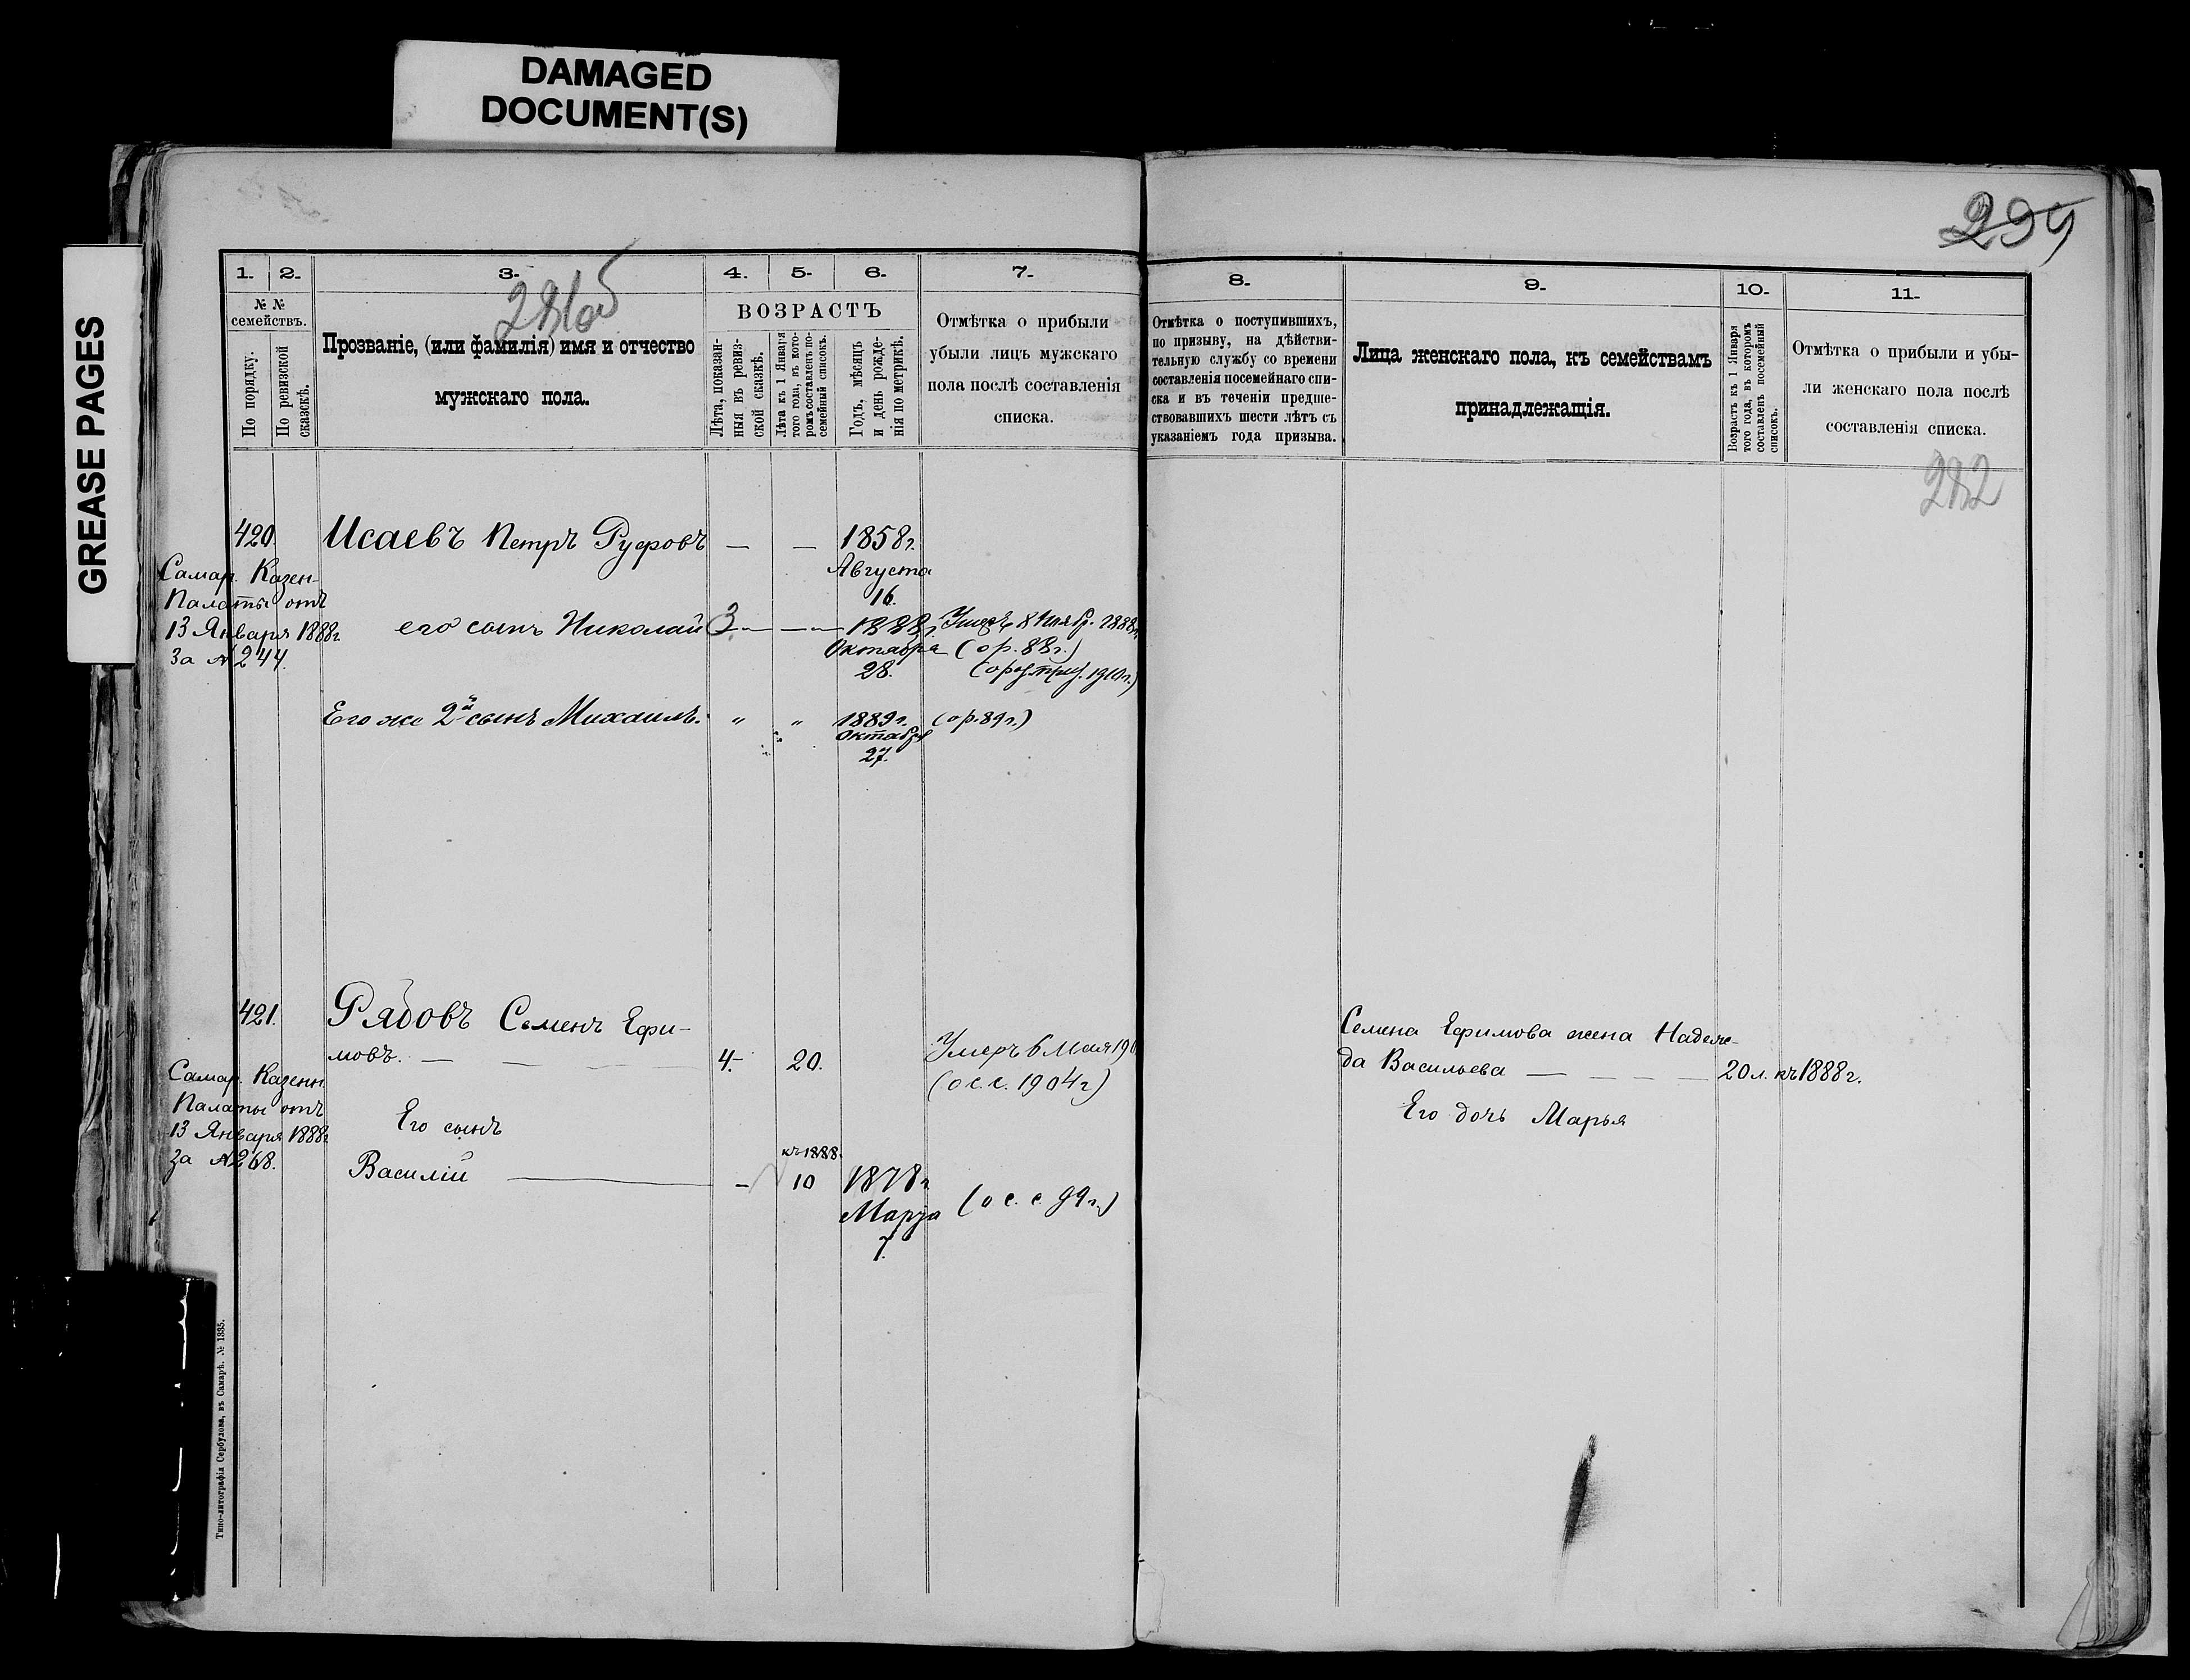 DAMAGED
DOCUMENT(S)
GREASE PAGES
299
281об
1. 2. 3. 4. 5. 6. 7.
№ № семействъ.
По порядку.
По ревизской сказскѣ.
Прозваніе, (или фамилія) имя и отчество
мужскаго пола.
ВОЗРАСТЪ
Лѣта, показан-
ныя въ ревиз-
ской сказкѣ.
Лѣта къ 1 Января
того года, въ кото-
ромъ составленъ по-
семейный списокъ.
Годъ, мѣсяцъ
и день рожде-
нія по метрикѣ.
Отмѣтка о прибыли
убыли лицъ мужскаго
пола послѣ составленія
списка.
420. Исаевъ Петръ Руфовъ — — 1858г.
Августа
16.
Самар. Казен-
Палаты отъ
13 Января 1888г
За №244.
его сынъ Николай 3 — — 1888г. Умеръ 8 Ноябр. 1888г.
Октября (ор. 88г.)
28. 1910г.)
Его же 2й сынъ Михаилъ. " " 1889г. (ор. 89г.)
Октября
27.
421. Рядовъ Семенъ Ефи-
мовъ. — — — 4. 20. Умеръ 6 Мая 190
(о с. с. 1904г)
Самар. Казенн.
Палаты отъ
13 Января 1888г
За №268.
Его сынъ
къ 1888.
Василій — — 10 1878г.
Марта (о с. с. 99г.)
7.
Типо-литографія Сербулова, въ Самарѣ. № 1335.
8. 9. 10. 11.
Отмѣтка о поступившихъ,
по призыву, на дѣйстви-
тельную службу со времени
составленія посемейнаго спи-
ска и въ теченіи предше-
ствовавшихъ шести лѣтъ съ
указаніемъ года призыва.
Лица женскаго пола, къ семействамъ
принадлежащія.
Возрастъ къ 1 Января
того года, въ которомъ
составленъ посемейный
списокъ.
Отмѣтка о прибыли и убы-
ли женскаго пола послѣ
составленія списка.
282
Семена Ефимова жена Надеж-
да Васильева — — — — 20 л. къ 1888г.
Его дочь Марья